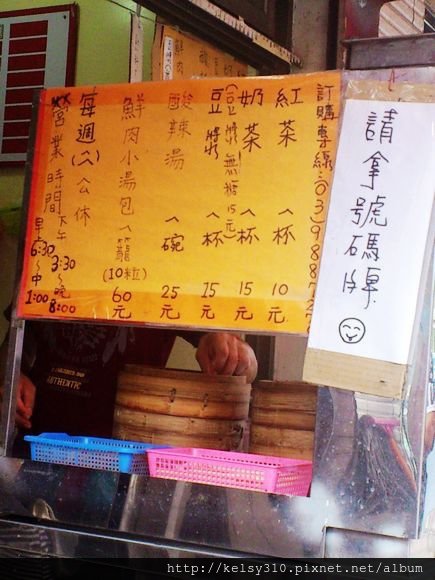 請拿號碼牌
訂購專線:(03)988
紅茶(杯) 10元
奶茶(杯) 15元
(豆漿無糖15元)
豆漿(杯) 15元
酸辣湯(碗) 25元
鮮肉小湯包(籠)(10粒) 60元
每週(六)公休
營業時間
下午3:30~晚8:00
早6:30~中1:00
AUTHENTIC
http://kelsy310.pixnet.net/album